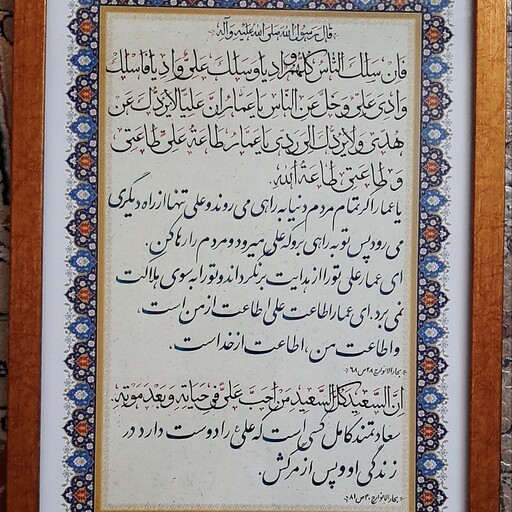 قال رسول الله صلی الله علیه و آله
فَاِن سَلَكَ النّاسُ كُلُّهُم وادِیاً وَسَلَكَ عَلِیٌّ وادِیاً فَاسلُك
وادِیَ عَلِیٍّ وَخَلِّ عَنِ النّاسِ یا عَمّارُ اِنَّ عَلِیّاً لایَرُدُّكَ عَن
هُدیً وَلایَرُدُّكَ اِلی رَدیً یا عَمّارُ طاعَةُ عَلِیٍّ طاعَتی
وَطاعَتی طاعَةُ اللهِ.
یا عمار اگر تمام مردم دنیا به راهی می روند و علی تنها از راه دیگری
می رود پس تو به راهی برو که علی میرود و مردم را رها کن.
ای عمار علی تو را از هدایت برنگرداند و تو را به سوی هلاکت
نمی برد. ای عمار اطاعت علی اطاعت از من است،
و اطاعت من، اطاعت از خداست.
بحارالانوار ج ۳۸ ص ۶۸
اِنَّ السَّعیدَ كُلَّ السَّعیدِ مَن اَحَبَّ عَلِیّاً فی حَیاتِهِ وَبَعدَ مَوتِهِ.
سعادتمند کامل کسی است که علی را دوست دارد در
زندگی او و پس از مرگش.
بحارالانوار ج ۴۰ ص ۸۱